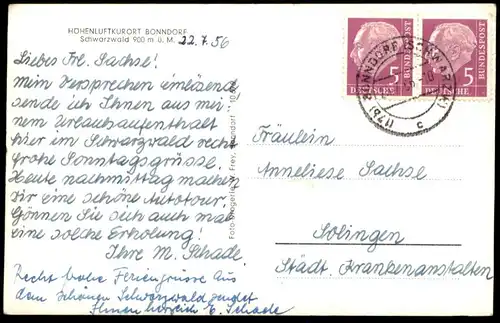 HÖHENLUFTKURORT BONNDORF
Schwarzwald 900 m ü. M.
22.7.56
Liebes Frl. Sachse!
Mein Versprechen einlösend,
sende ich Ihnen aus mei-
nem Urlaubsaufenthalt
hier im Schwarzwald recht
frohe Sonntagsgrüsse.
Heute nachmittag machen
wir eine schöne Autotour.
Gönnen Sie sich auch mal
eine solche Erholung!
Ihre M. Schade.
Recht frohe Feriengrüsse aus
dem schönen Schwarzwald sendet
Ihnen herzlich E. Schade
Foto-Drogerie W. Frey, Bonndorf
5
DEUTSCHE
BUNDESPOST
5
DEUTSCHE
BUNDESPOST
(17b) BONNDORF (SCHWARZW)
c
Fräulein
Anneliese Sachse
Solingen
Städt. Krankenanstalten